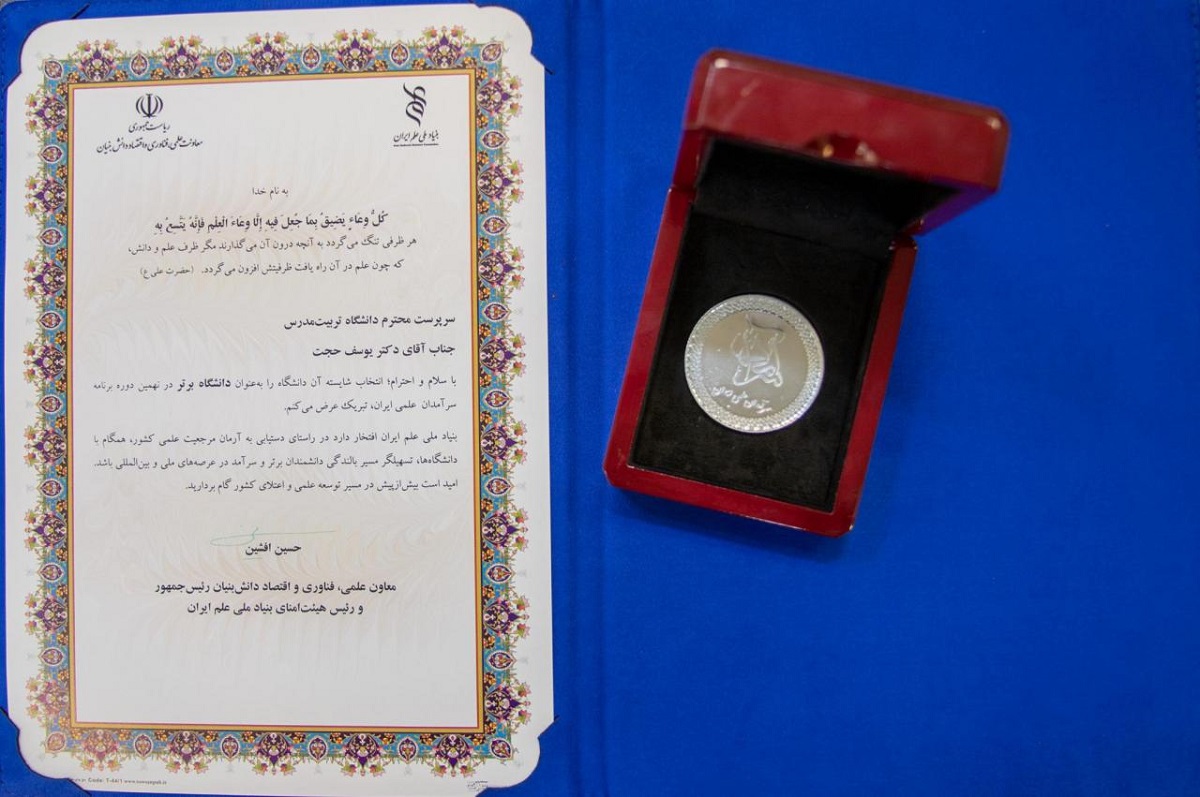 ریاست جمهوری
معاونت علمی، فناوری و اقتصاد دانش بنیان
بنیاد ملی علم ایران
به نام خدا
كُلُّ وِعَاءٍ يَضِيقُ بِمَا جُعِلَ فِيهِ إِلَّا وِعَاءَ الْعِلْمِ فَإِنَّهُ يَتَّسِعُ بِهِ
هر ظرفی تنگ می‌گردد به آنچه درون آن می‌گذارند مگر ظرف علم و دانش،
که چون علم در آن راه یافت ظرفیتش افزون می‌گردد. (حضرت علی ع)
سرپرست محترم دانشگاه تربیت‌مدرس
جناب آقای دکتر یوسف حجت
با سلام و احترام؛ انتخاب شایسته آن دانشگاه را به‌عنوان دانشگاه برتر در نهمین دوره برنامه
سرآمدان علمی ایران، تبریک عرض می‌کنم.
بنیاد ملی علم ایران افتخار دارد در راستای دستیابی به آرمان مرجعیت علمی کشور، همگام با
دانشگاه‌ها، تسهیلگر مسیر بالندگی دانشمندان برتر و سرآمد در عرصه‌های ملی و بین‌المللی باشد.
امید است بیش‌ازپیش در مسیر توسعه علمی و اعتلای کشور گام بردارید.
حسین افشین
معاون علمی، فناوری و اقتصاد دانش‌بنیان رئیس‌جمهور
و رئیس هیئت‌امنای بنیاد ملی علم ایران